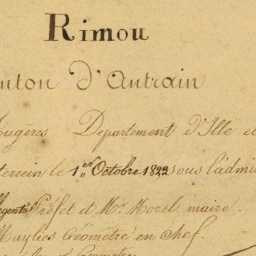 Rimou
nton d'Antrain
ougères Département d'Ille e
terrein le 1er Octobre sous l'admi
Préfet et Mr. Morel maire.
Géomètre en chef.